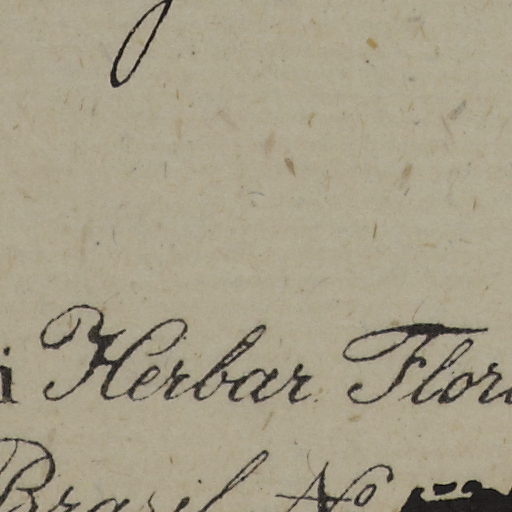 i Herbar. Flor
Brasil. No